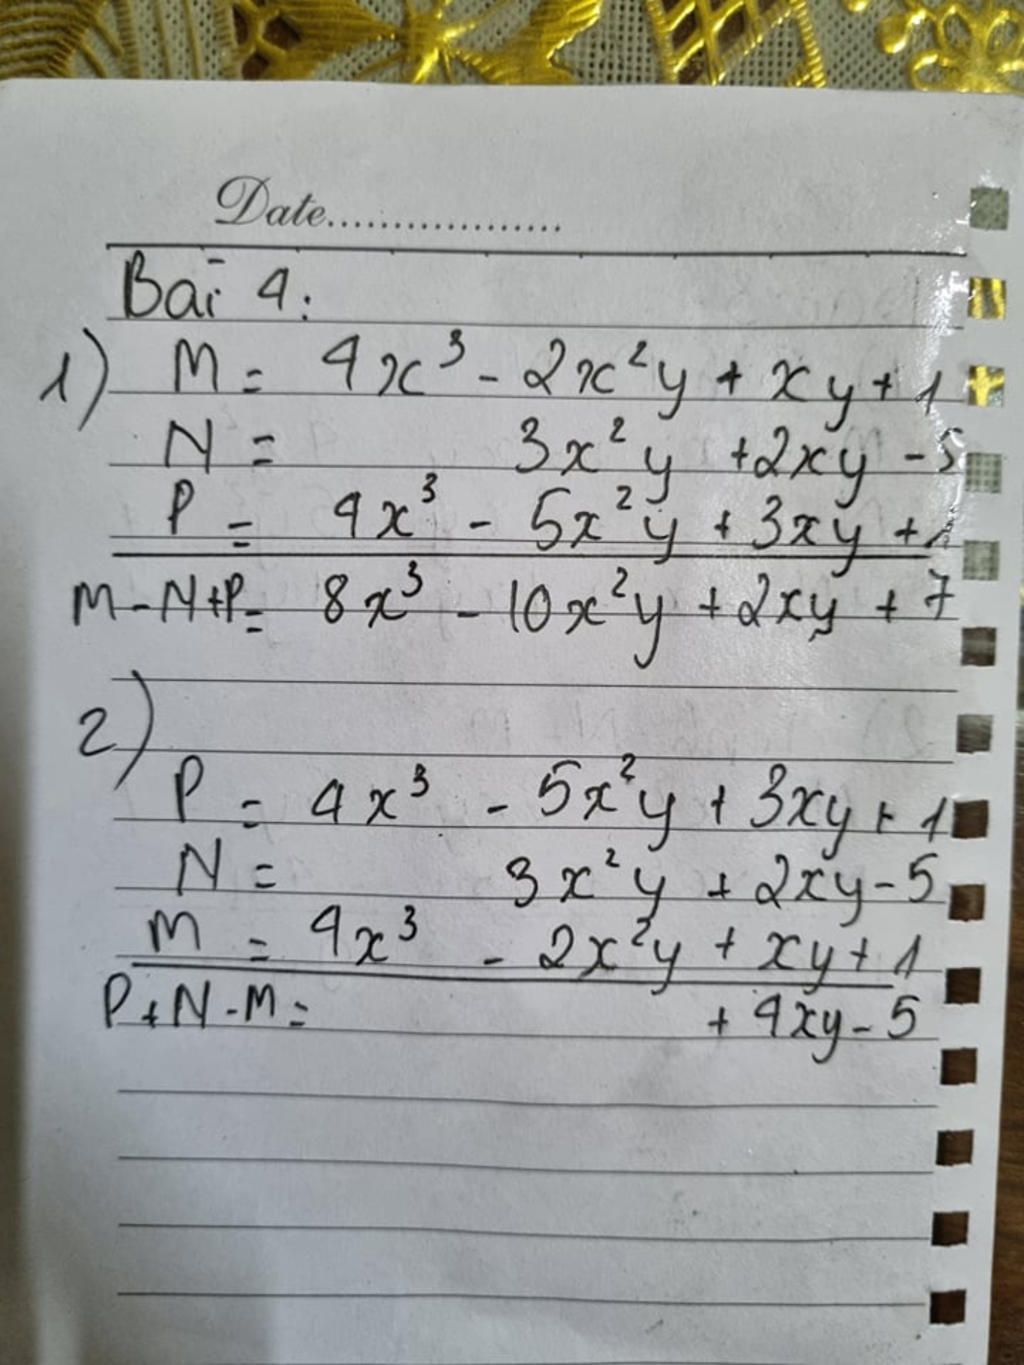 Date..................
Bài 4:
1) M = 4x³ - 2x²y + xy + 1
N = 3x²y + 2xy - 5
P = 4x³ - 5x²y + 3xy + 1
M - N + P = 8x³ - 10x²y + 2xy + 7
2)
P = 4x³ - 5x²y + 3xy + 1
N = 3x²y + 2xy - 5
M = 4x³ - 2x²y + xy + 1
P + N - M = + 4xy - 5